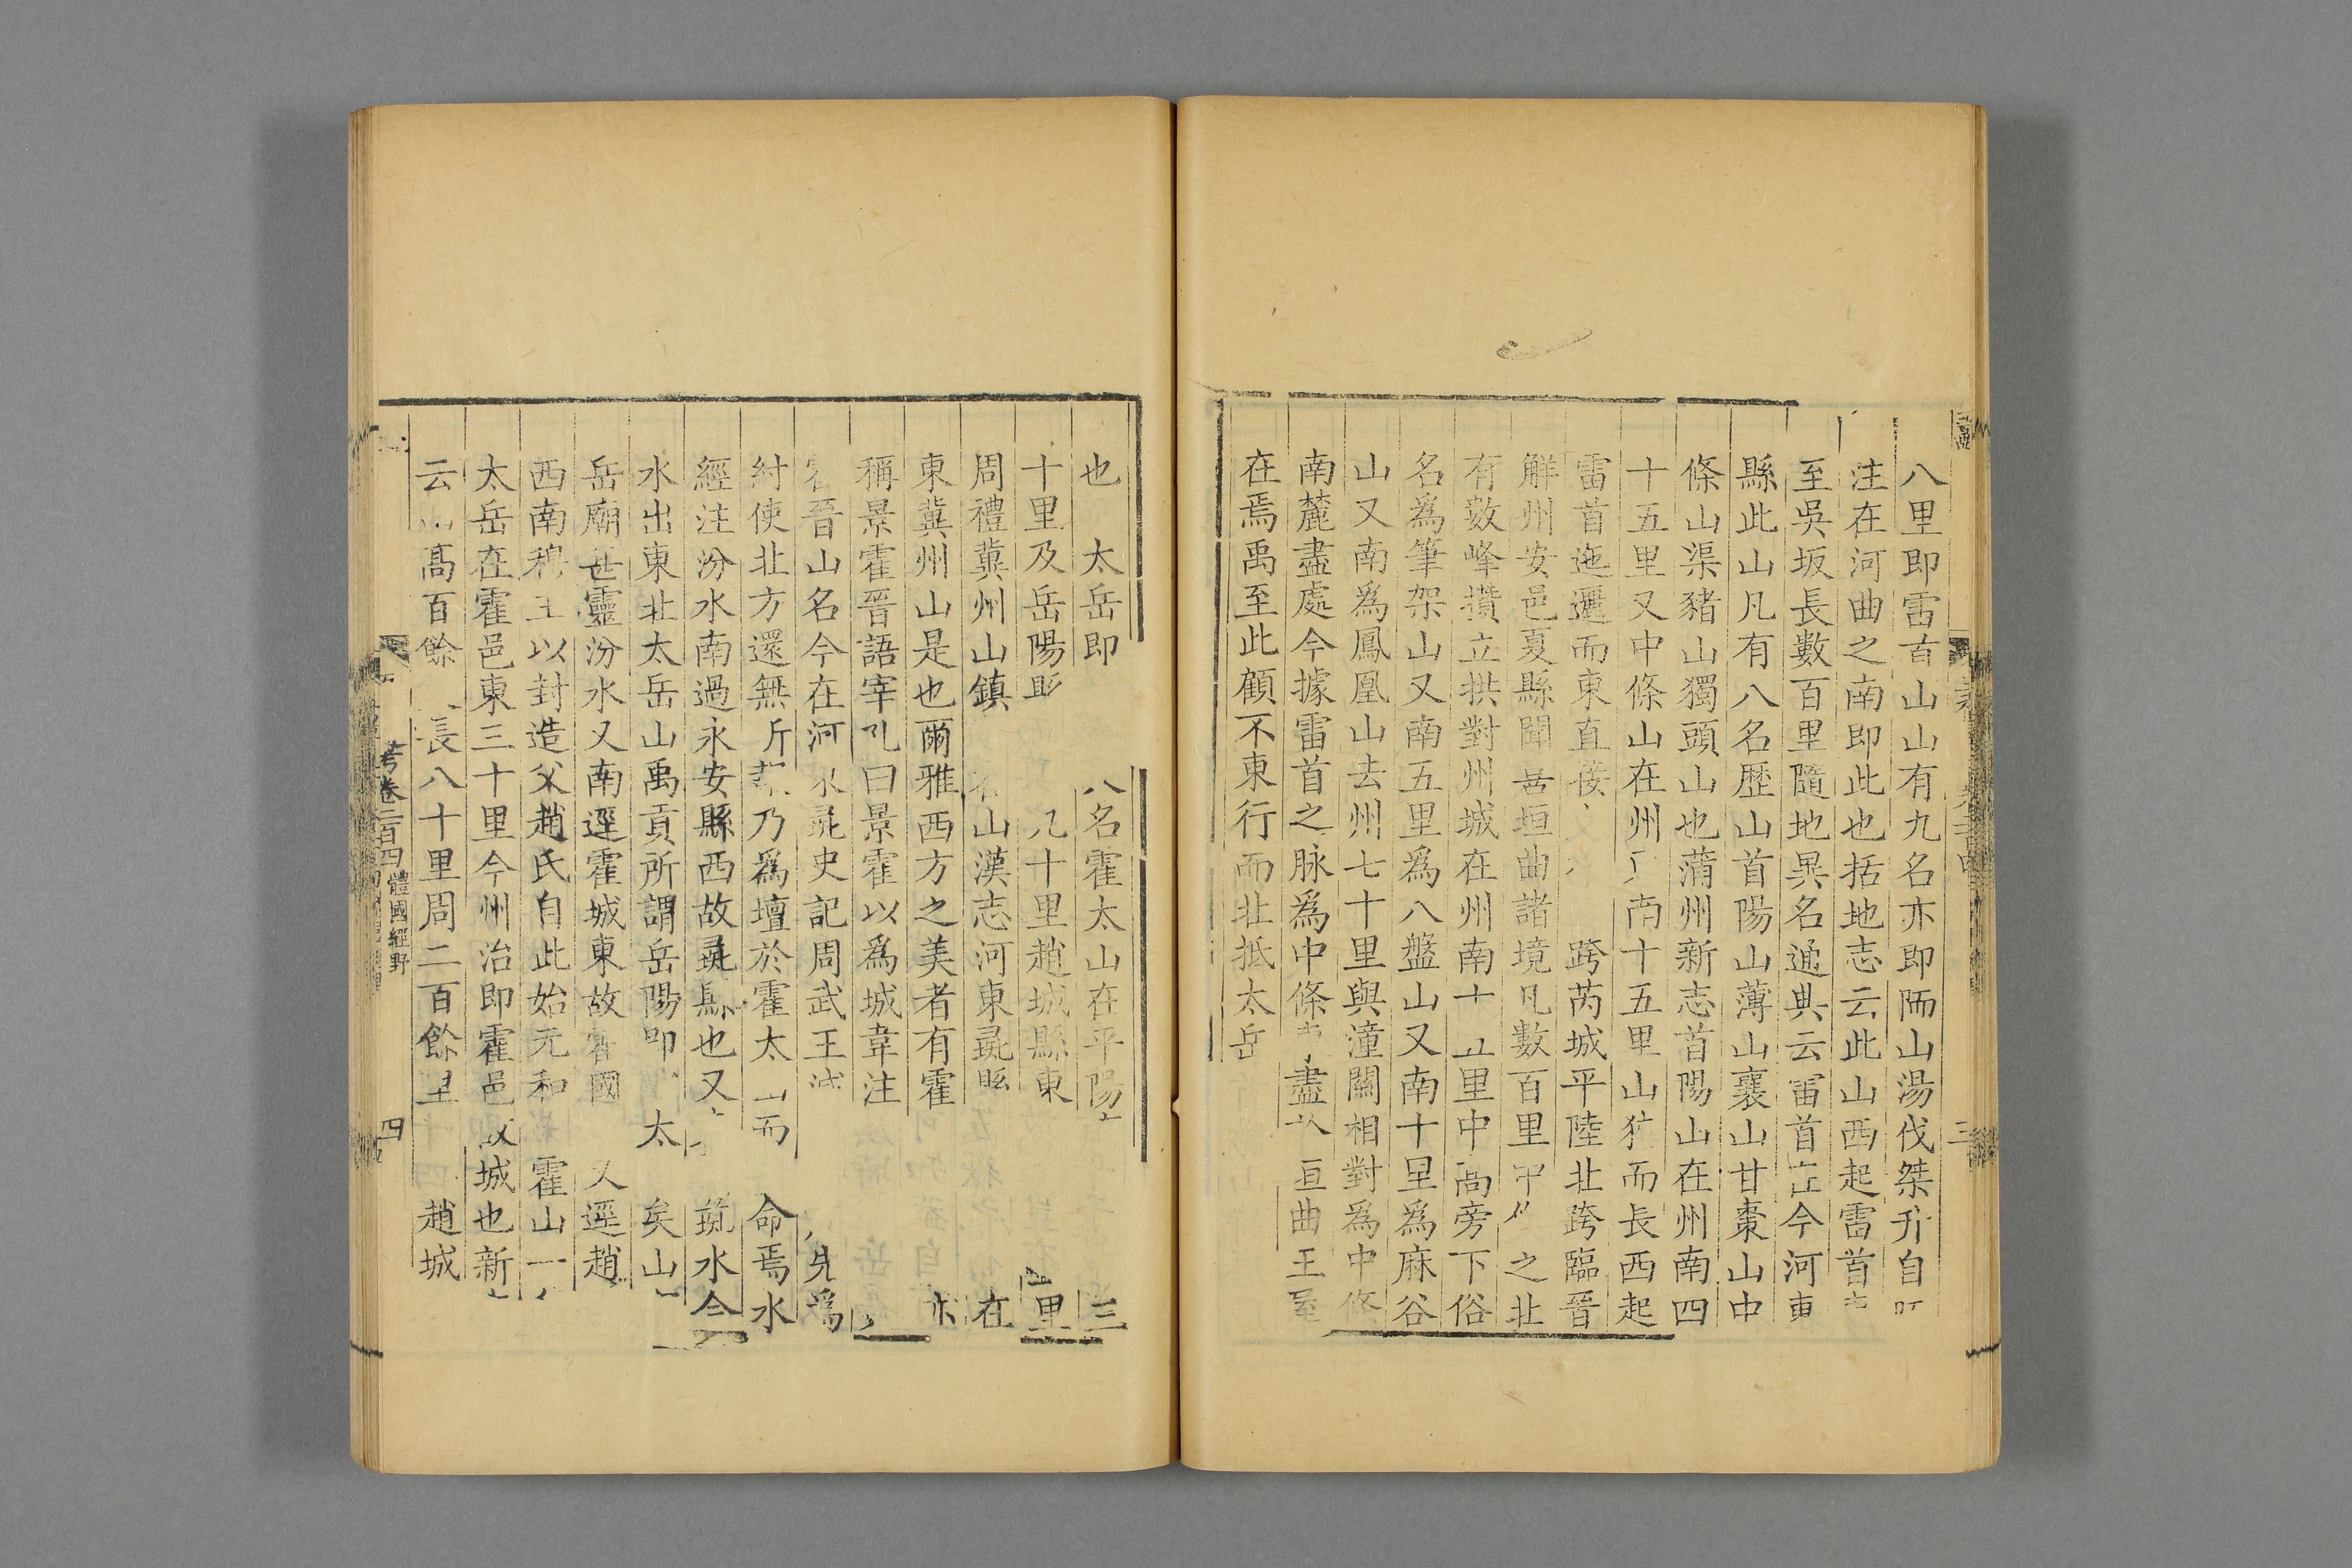 八里即雷首山山有九名亦即陑山湯伐桀升自
注在河曲之南即此也括地志云此山西起雷首
至吳坂長數百里隨地異名通典云雷首在今河東
縣此山凡有八名歷山首陽山薄山襄山甘棗山中
條山渠豬山獨頭山也蒲州新志首陽山在州南四
十五里又中條山在州 南十五里山狹而長西起
雷首迤邐而東直接 跨芮城平陸北跨臨晉
解州安邑夏縣聞喜垣曲諸境凡數百里 之北
有數峰攢立拱對州城在州南十五里中高旁下俗
名為筆架山又南五里為八盤山又南十里為麻谷
山又南為鳳凰山去州七十里與潼關相對為中條
南麓盡處今據雷首之脉為中條 盡於垣曲王屋
在焉禹至此顧不東行而北抵太岳
也 太岳即 名霍太山在平陽 三
十里及岳陽 九十里趙城縣東 里
周禮冀州山鎮 山漢志河東彘縣 在
東冀州山是也爾雅西方之美者有霍
稱景霍晉語宰孔曰景霍以為城韋注
晉山名今在河 彘史記周武王 先為
紂使北方還無所 乃為壇於霍太山而 命焉水
經注汾水南過永安縣西故彘縣也又 彘水今
水出東北太岳山禹貢所謂岳陽即 太 矣山
岳廟甚靈汾水又南逕霍城東故霍國 又逕趙
西南穆王以封造父趙氏自此始元和 霍山一
太岳在霍邑東三十里今州治即霍邑故城也新
云山高百餘 長八十里周二百餘里 趙城
考卷二百四 體國經野 四
三